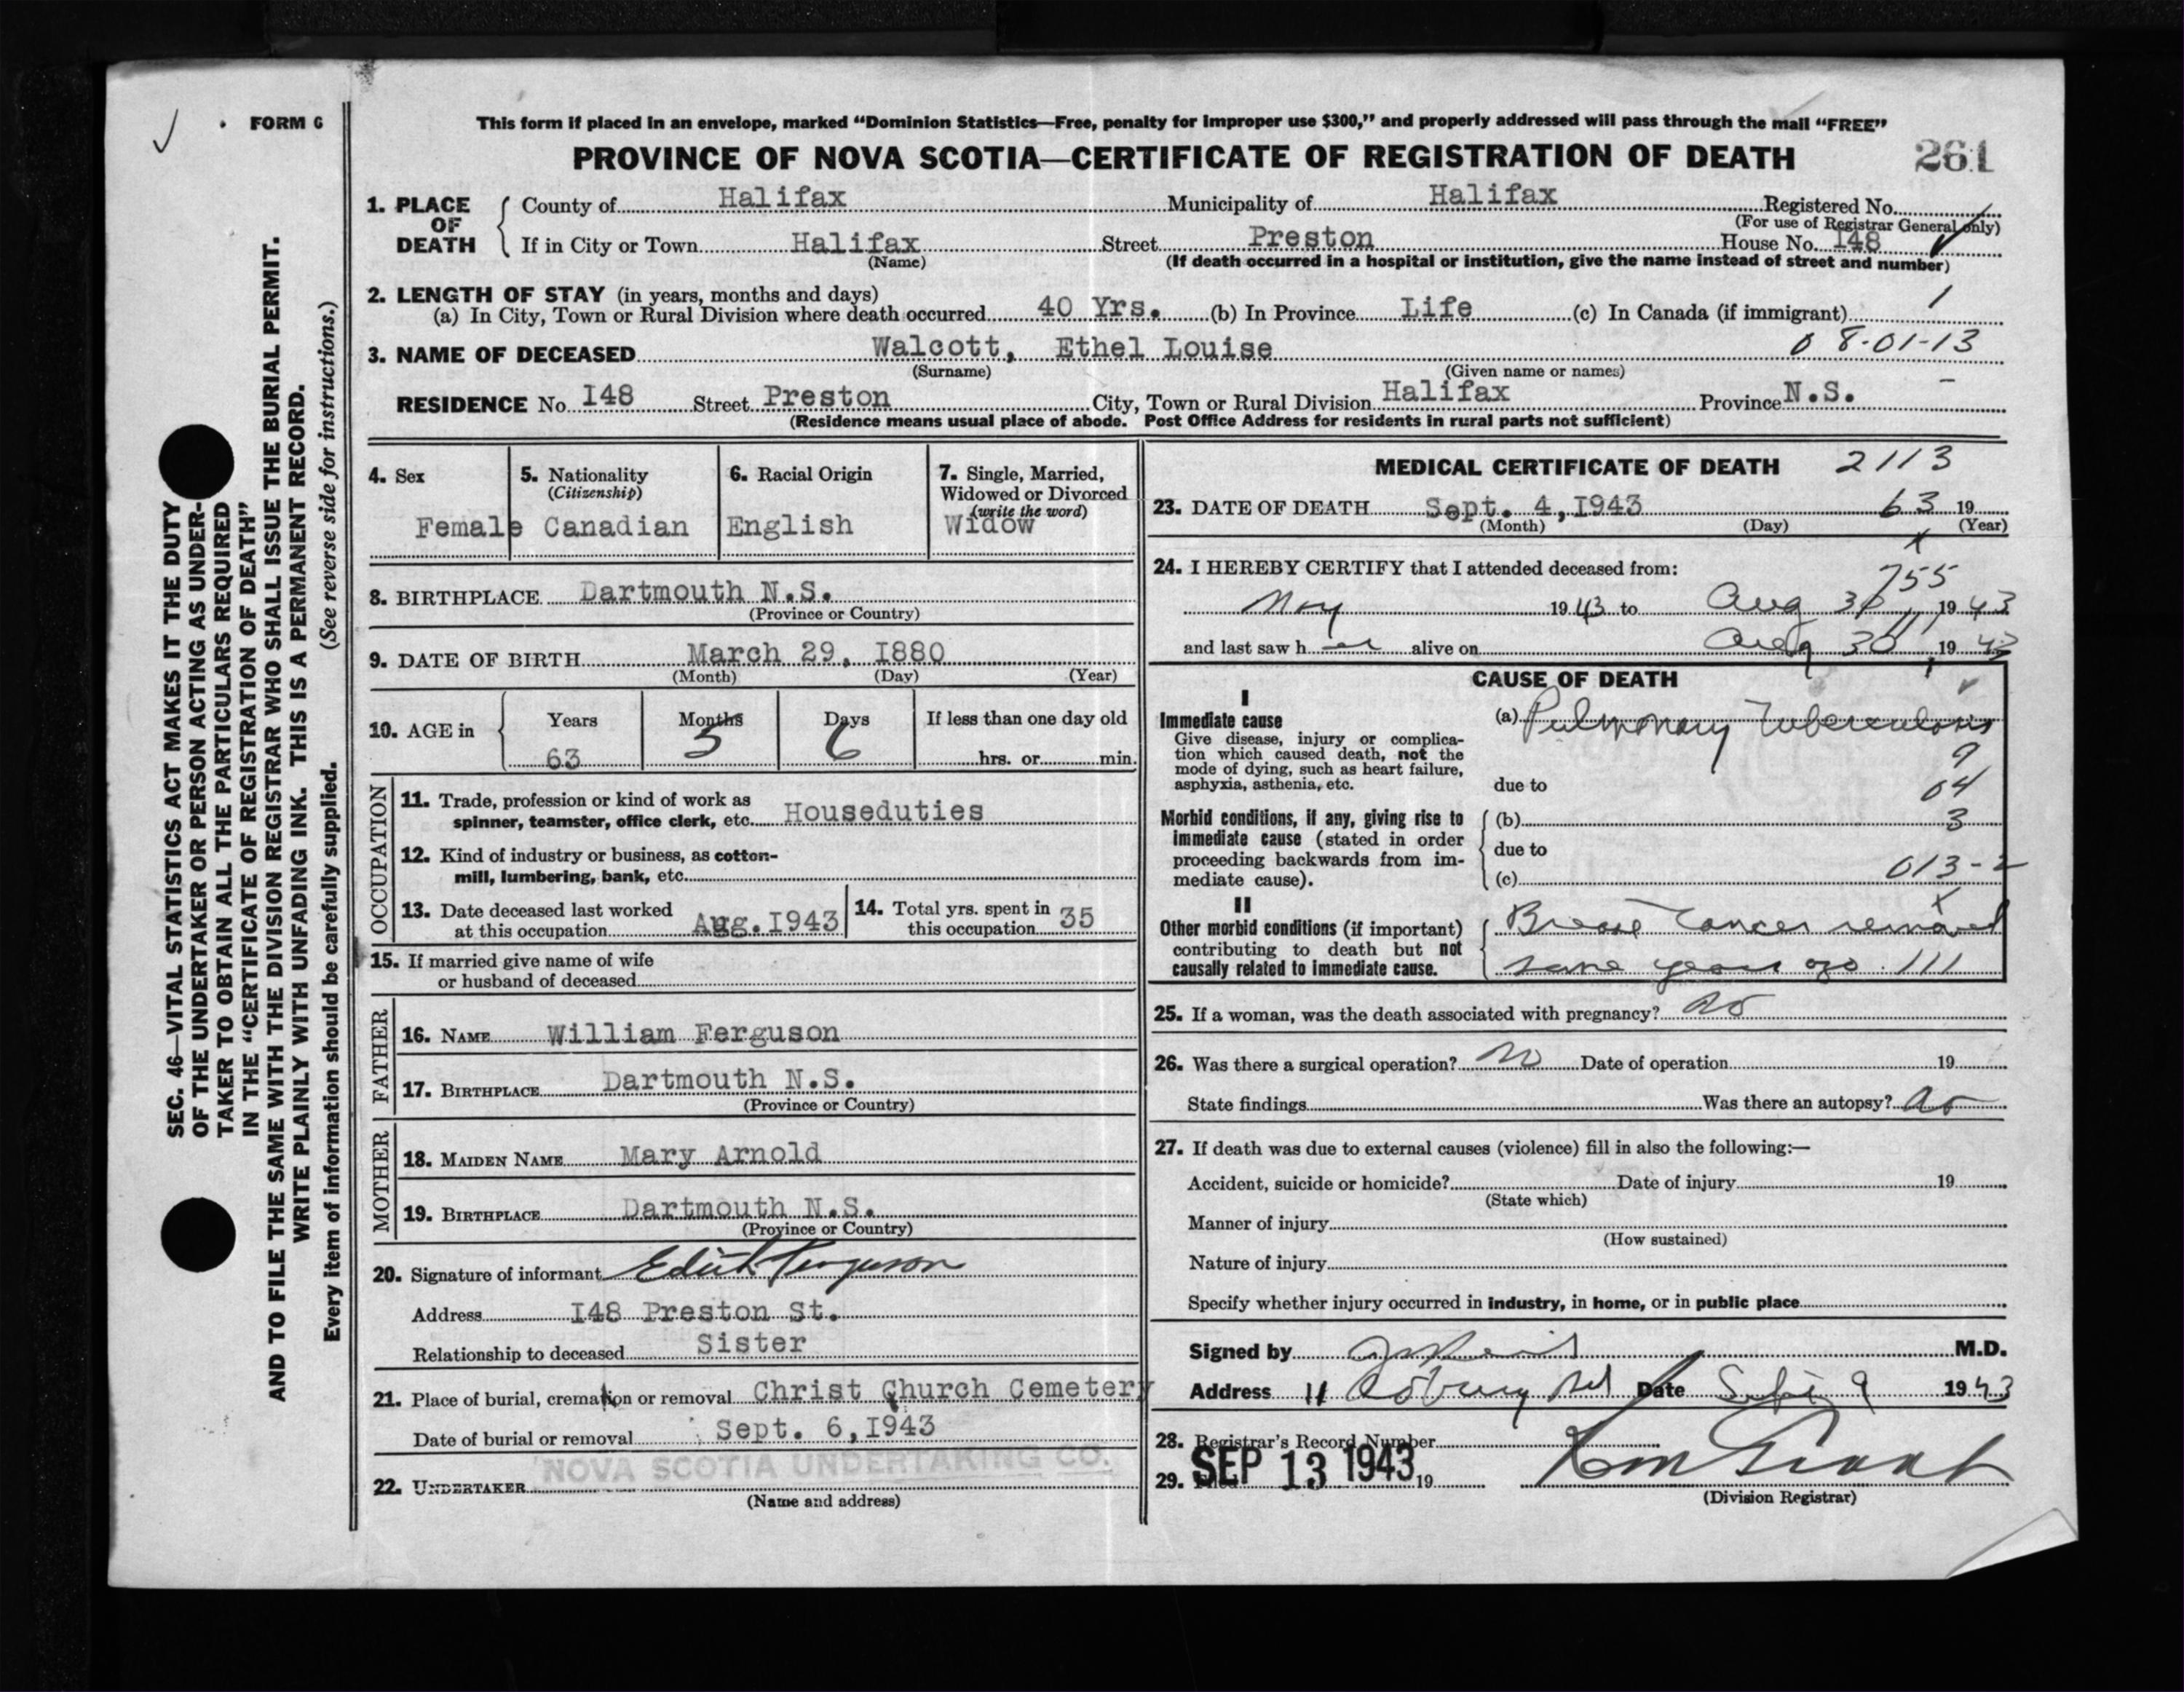 FORM G
This form if placed in an envelope, marked “Dominion Statistics—Free, penalty for improper use $300,” and properly addressed will pass through the mail “FREE”
PROVINCE OF NOVA SCOTIA—CERTIFICATE OF REGISTRATION OF DEATH
261
1. PLACE OF DEATH
County of Halifax Municipality of Halifax Registered No.
(For use of Registrar General only)
If in City or Town Halifax Street Preston House No. I48
(Name) (If death occurred in a hospital or institution, give the name instead of street and number)
2. LENGTH OF STAY (in years, months and days)
(a) In City, Town or Rural Division where death occurred 40 Yrs. (b) In Province Life (c) In Canada (if immigrant) 1
3. NAME OF DECEASED Walcott, Ethel Louise 0 8-01-13
(Surname) (Given name or names)
RESIDENCE No. I48 Street Preston City, Town or Rural Division Halifax Province N.S. -
(Residence means usual place of abode. Post Office Address for residents in rural parts not sufficient)
4. Sex
Female
5. Nationality
(Citizenship)
Canadian
6. Racial Origin
English
7. Single, Married,
Widowed or Divorced
(write the word)
Widow
8. BIRTHPLACE Dartmouth N.S.
(Province or Country)
9. DATE OF BIRTH March 29, I880
(Month) (Day) (Year)
10. AGE in
Years Months Days If less than one day old
63 5 6 hrs. or min.
OCCUPATION
11. Trade, profession or kind of work as
spinner, teamster, office clerk, etc. Houseduties
12. Kind of industry or business, as cotton-
mill, lumbering, bank, etc.
13. Date deceased last worked
at this occupation Aug. I943
14. Total yrs. spent in
this occupation 35
15. If married give name of wife
or husband of deceased
FATHER
16. NAME William Ferguson
17. BIRTHPLACE Dartmouth N.S.
(Province or Country)
MOTHER
18. MAIDEN NAME Mary Arnold
19. BIRTHPLACE Dartmouth N.S.
(Province or Country)
20. Signature of informant Edith Ferguson
Address I48 Preston St.
Relationship to deceased Sister
21. Place of burial, cremation or removal Christ Church Cemetery
Date of burial or removal Sept. 6, I943
NOVA SCOTIA UNDERTAKING CO.
22. UNDERTAKER
(Name and address)
MEDICAL CERTIFICATE OF DEATH 2113
23. DATE OF DEATH Sept. 4, I943 63 19
(Month) (Day) (Year)
24. I HEREBY CERTIFY that I attended deceased from:
755
1943 to Aug 30, 1943
and last saw her alive on Aug 30, 1943
CAUSE OF DEATH
I
Immediate cause
Give disease, injury or complica-
tion which caused death, not the
mode of dying, such as heart failure,
asphyxia, asthenia, etc.
(a) Pulmonary Tuberculosis
9
due to 04
Morbid conditions, if any, giving rise to
immediate cause (stated in order
proceeding backwards from im-
mediate cause).
(b) 3
due to
(c) 013-2
II
Other morbid conditions (if important)
contributing to death but not
causally related to immediate cause.
Breast Cancer removed
some years ago. 111
25. If a woman, was the death associated with pregnancy? no
26. Was there a surgical operation? no Date of operation 19
State findings Was there an autopsy? no
27. If death was due to external causes (violence) fill in also the following:—
Accident, suicide or homicide? Date of injury 19
(State which)
Manner of injury
(How sustained)
Nature of injury
Specify whether injury occurred in industry, in home, or in public place
Signed by M.D.
Address 11 Date Sept 9 1943
28. Registrar's Record Number
29. Filed SEP 13 1943 19
(Division Registrar)
SEC. 46—VITAL STATISTICS ACT MAKES IT THE DUTY
OF THE UNDERTAKER OR PERSON ACTING AS UNDER-
TAKER TO OBTAIN ALL THE PARTICULARS REQUIRED
IN THE “CERTIFICATE OF REGISTRATION OF DEATH”
AND TO FILE THE SAME WITH THE DIVISION REGISTRAR WHO SHALL ISSUE THE BURIAL PERMIT.
WRITE PLAINLY WITH UNFADING INK. THIS IS A PERMANENT RECORD.
Every item of information should be carefully supplied. (See reverse side for instructions.)